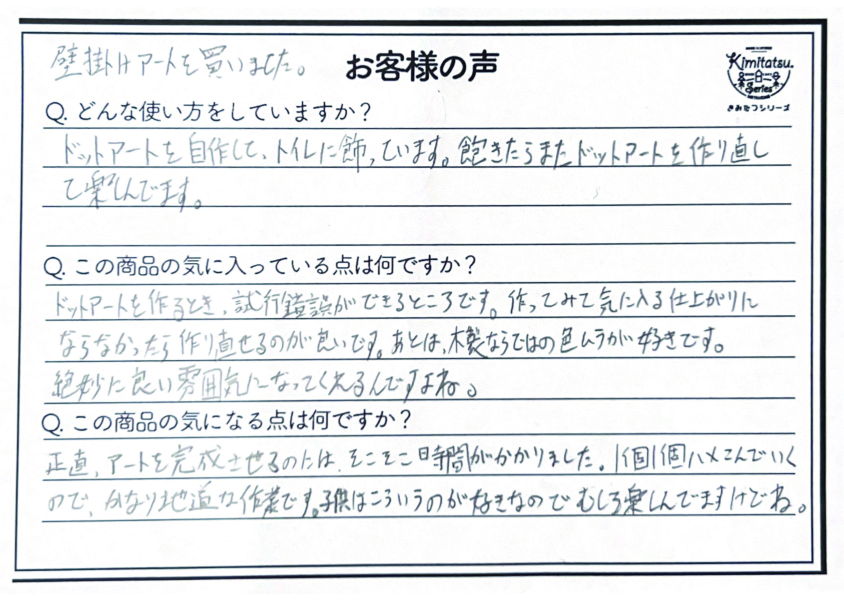 壁掛けアートを買いました。
お客様の声
Kimitatsu.
Series
きみたつシリーズ
Q. どんな使い方をしていますか？
ドットアートを自作して、トイレに飾っています。飽きたらまたドットアートを作り直し
て楽しんでます。
Q. この商品の気に入っている点は何ですか？
ドットアートを作るとき、試行錯誤ができるところです。作ってみて気に入る仕上がりに
ならなかったら作り直せるのが良いです。あとは、木製ならではの色ムラが好きです。
絶妙に良い雰囲気になってくれるんですよね。
Q. この商品の気になる点は何ですか？
正直、アートを完成させるのには、そこそこ時間がかかりました。1個1個ハメこんでいく
ので、かなり地道な作業です。子供はこういうのが好きなのでむしろ楽しんでますけどね。